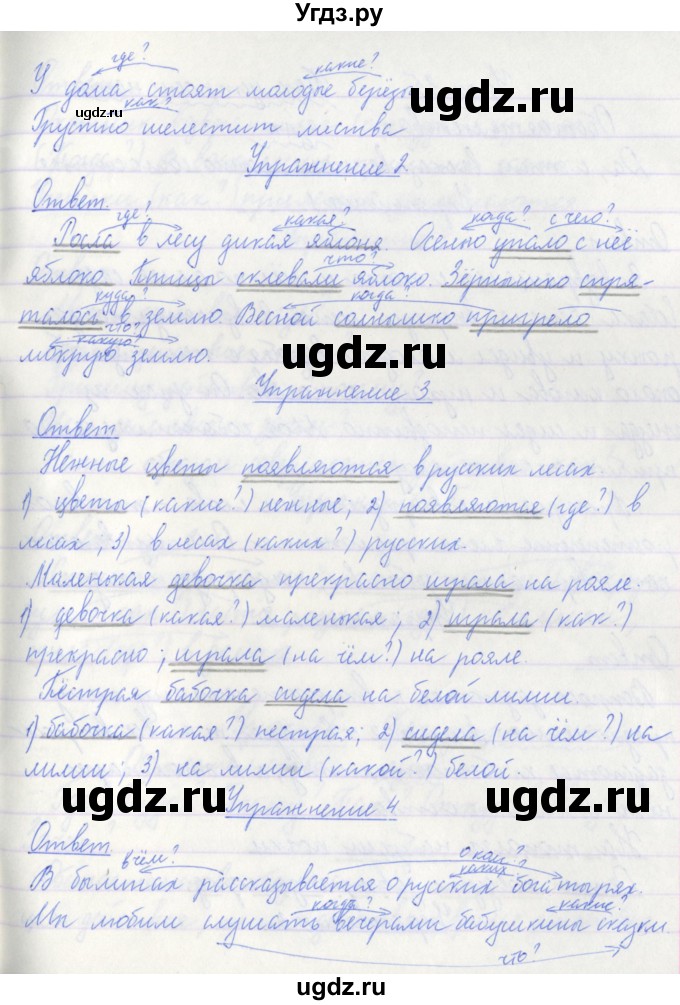 Угдз.ру
где? какие?
У дома стоят молодые берёзы
ugdz.ru
ugdz.ru
как?
Грустно шелестит листва
Упражнение 2
Ответ.
где? какая? когда? с чего?
Росла в лесу дикая яблоня. Осенью упало с неё
что?
яблоко. Птицы склевали яблоко. Зёрнышко спря-
куда? когда?
талось в землю. Весной солнышко пригрело
какую? что?
мокрую землю.
ugdz.ru
ugdz.ru
Упражнение 3
Ответ
Нежные цветы появляются в русских лесах.
1) цветы (какие?) нежные; 2) появляются (где?) в
лесах; 3) в лесах (каких?) русских.
Маленькая девочка прекрасно играла на рояле.
1) девочка (какая?) маленькая; 2) играла (как?)
прекрасно; играла (на чём?) на рояле.
ugdz.ru
Пёстрая бабочка сидела на белой лилии.
1) бабочка (какая?) пестрая; 2) сидела (на чём?) на
лилии; 3) на лилии (какой?) белой.
ugdz.ru
ugdz.ru
Упражнение 4
Ответ.
в чём? о ком?
каких?
В былинах рассказывается о русских богатырях.
когда? какие?
Мы любим слушать вечерами бабушкины сказки
что?
ugdz.ru
ugdz.ru